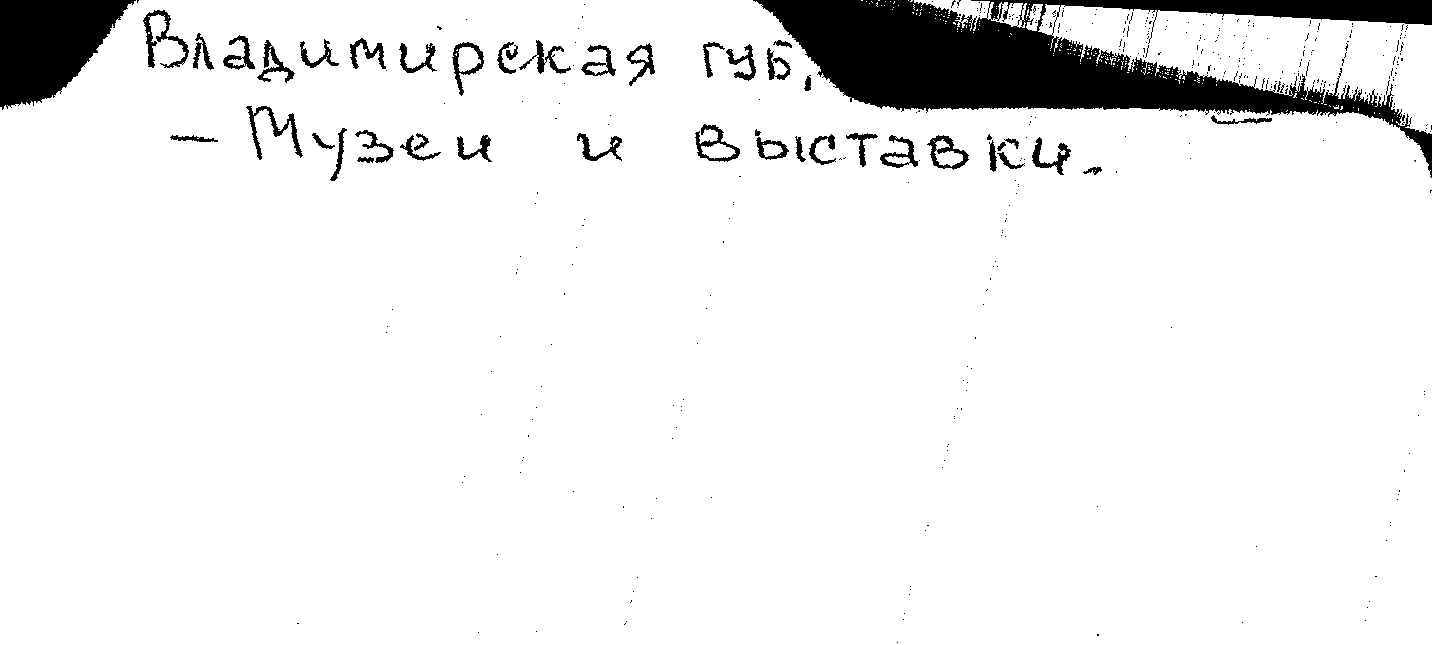 Владимирская губ.
- Музеи и выставки.